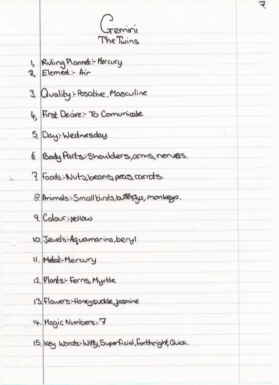 7
Gemini
The Twins
1, Ruling Planet:- Mercury
2, Element:- Air
3. Quality:- Posative, Masculine
4, First Desire:- To Comunicate
5, Day:- Wednesday
6. Body Parts:- Shoulders, arms, nerves.
7. Foods:- Nuts, beans, peas, carrots.
8. Animals:- Small birds, monkeys.
9. Colour:- yellow
10. Jewels:- Aquamarine, beryl
11. Metal:- Mercury
12. Plants:- Ferns, Myrtle
13. Flowers:- Honeysuckle, jasmine
14. Magic Numbers:- 7
15. Key Words:- Witty, Superficial, Forthright, Quick.